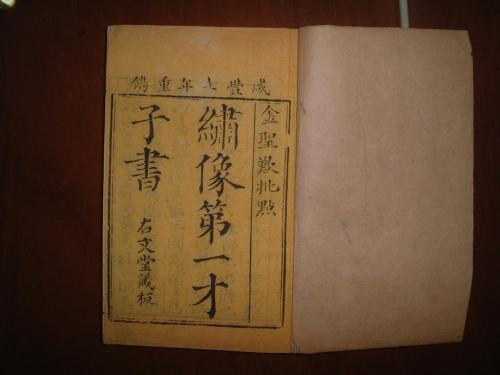 咸豐七年重鐫
金聖歎批點
繡像第一才
子書
右文堂藏板